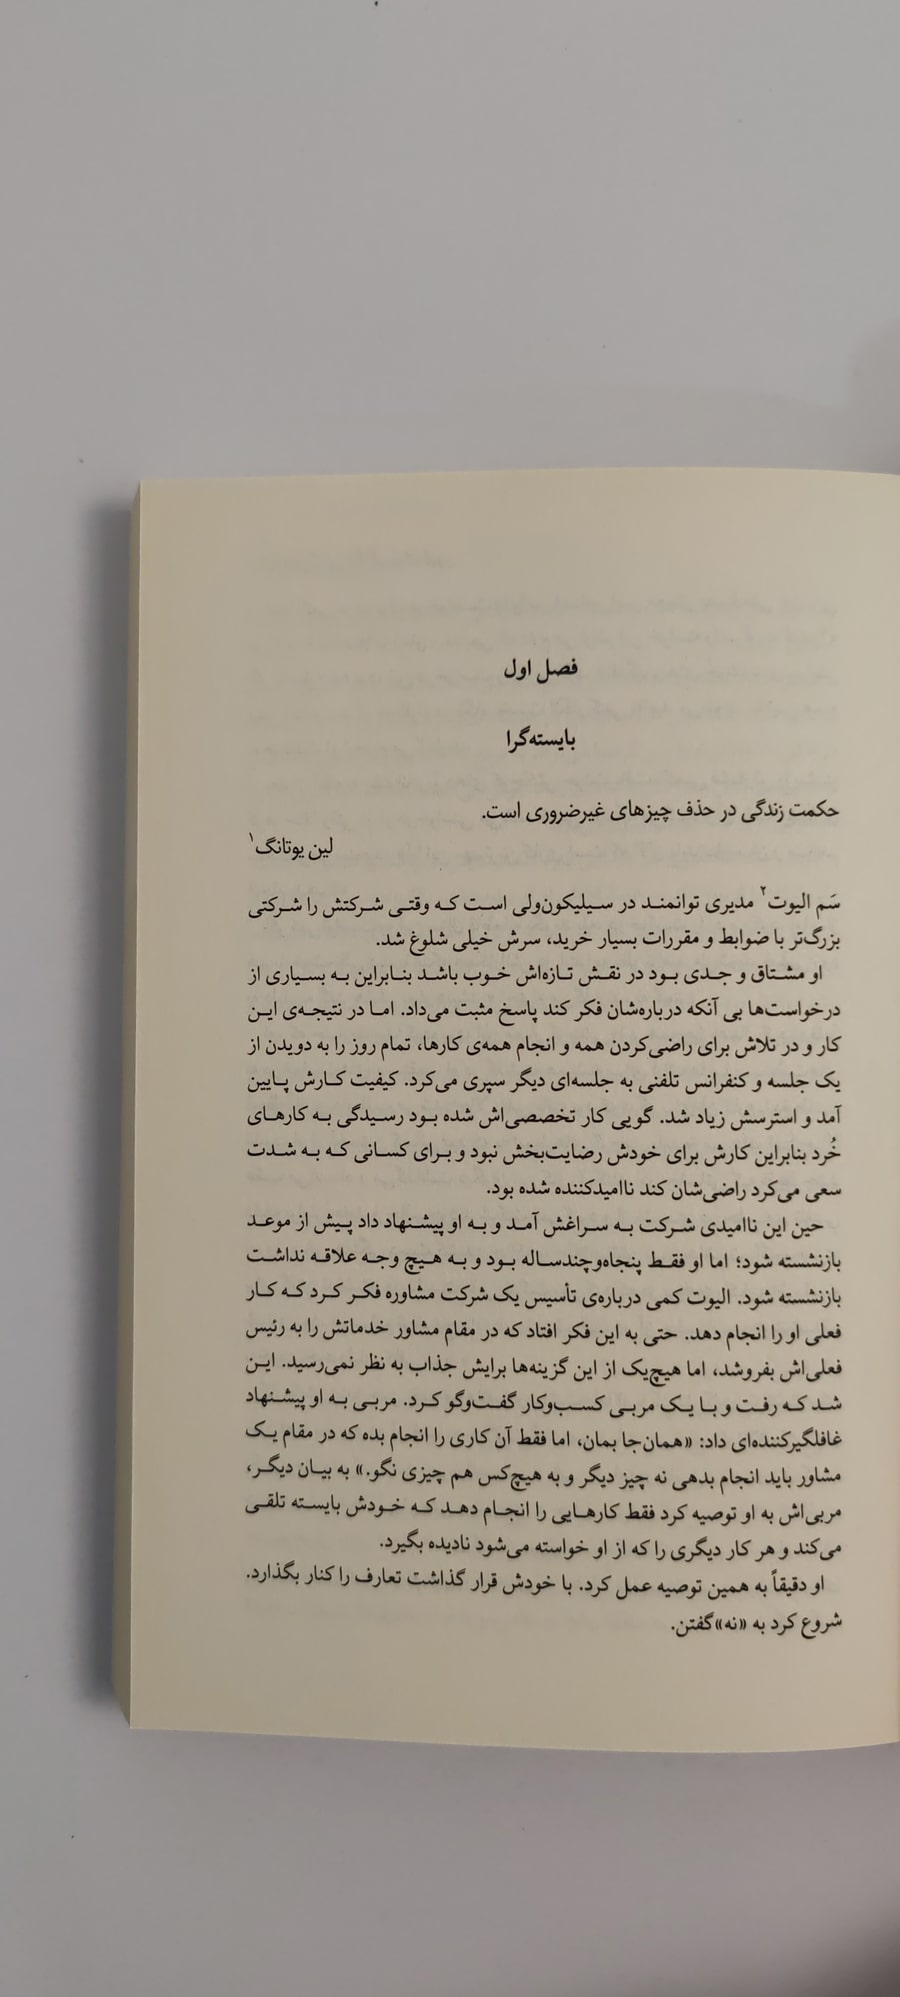 فصل اول
بایسته‌گرا
حکمت زندگی در حذف چیزهای غیرضروری است.
لین یوتانگ۱
سَم الیوت۲ مدیری توانمند در سیلیکون‌ولی است که وقتی شرکتش را شرکتی
بزرگ‌تر با ضوابط و مقررات بسیار خرید، سرش خیلی شلوغ شد.
او مشتاق و جدی بود در نقش تازه‌اش خوب باشد بنابراین به بسیاری از
درخواست‌ها بی آنکه درباره‌شان فکر کند پاسخ مثبت می‌داد. اما در نتیجه‌ی این
کار و در تلاش برای راضی‌کردن همه و انجام همه‌ی کارها، تمام روز را به دویدن از
یک جلسه و کنفرانس تلفنی به جلسه‌ای دیگر سپری می‌کرد. کیفیت کارش پایین
آمد و استرسش زیاد شد. گویی کار تخصصی‌اش شده بود رسیدگی به کارهای
خُرد بنابراین کارش برای خودش رضایت‌بخش نبود و برای کسانی که به شدت
سعی می‌کرد راضی‌شان کند ناامیدکننده شده بود.
حین این ناامیدی شرکت به سراغش آمد و به او پیشنهاد داد پیش از موعد
بازنشسته شود؛ اما او فقط پنجاه‌وچندساله بود و به هیچ وجه علاقه نداشت
بازنشسته شود. الیوت کمی درباره‌ی تأسیس یک شرکت مشاوره فکر کرد که کار
فعلی او را انجام دهد. حتی به این فکر افتاد که در مقام مشاور خدماتش را به رئیس
فعلی‌اش بفروشد، اما هیچ‌یک از این گزینه‌ها برایش جذاب به نظر نمی‌رسید. این
شد که رفت و با یک مربی کسب‌وکار گفت‌وگو کرد. مربی به او پیشنهاد
غافلگیرکننده‌ای داد: «همان‌جا بمان، اما فقط آن کاری را انجام بده که در مقام یک
مشاور باید انجام بدهی نه چیز دیگر و به هیچ‌کس هم چیزی نگو.» به بیان دیگر،
مربی‌اش به او توصیه کرد فقط کارهایی را انجام دهد که خودش بایسته تلقی
می‌کند و هر کار دیگری را که از او خواسته می‌شود نادیده بگیرد.
او دقیقاً به همین توصیه عمل کرد. با خودش قرار گذاشت تعارف را کنار بگذارد.
شروع کرد به «نه»گفتن.